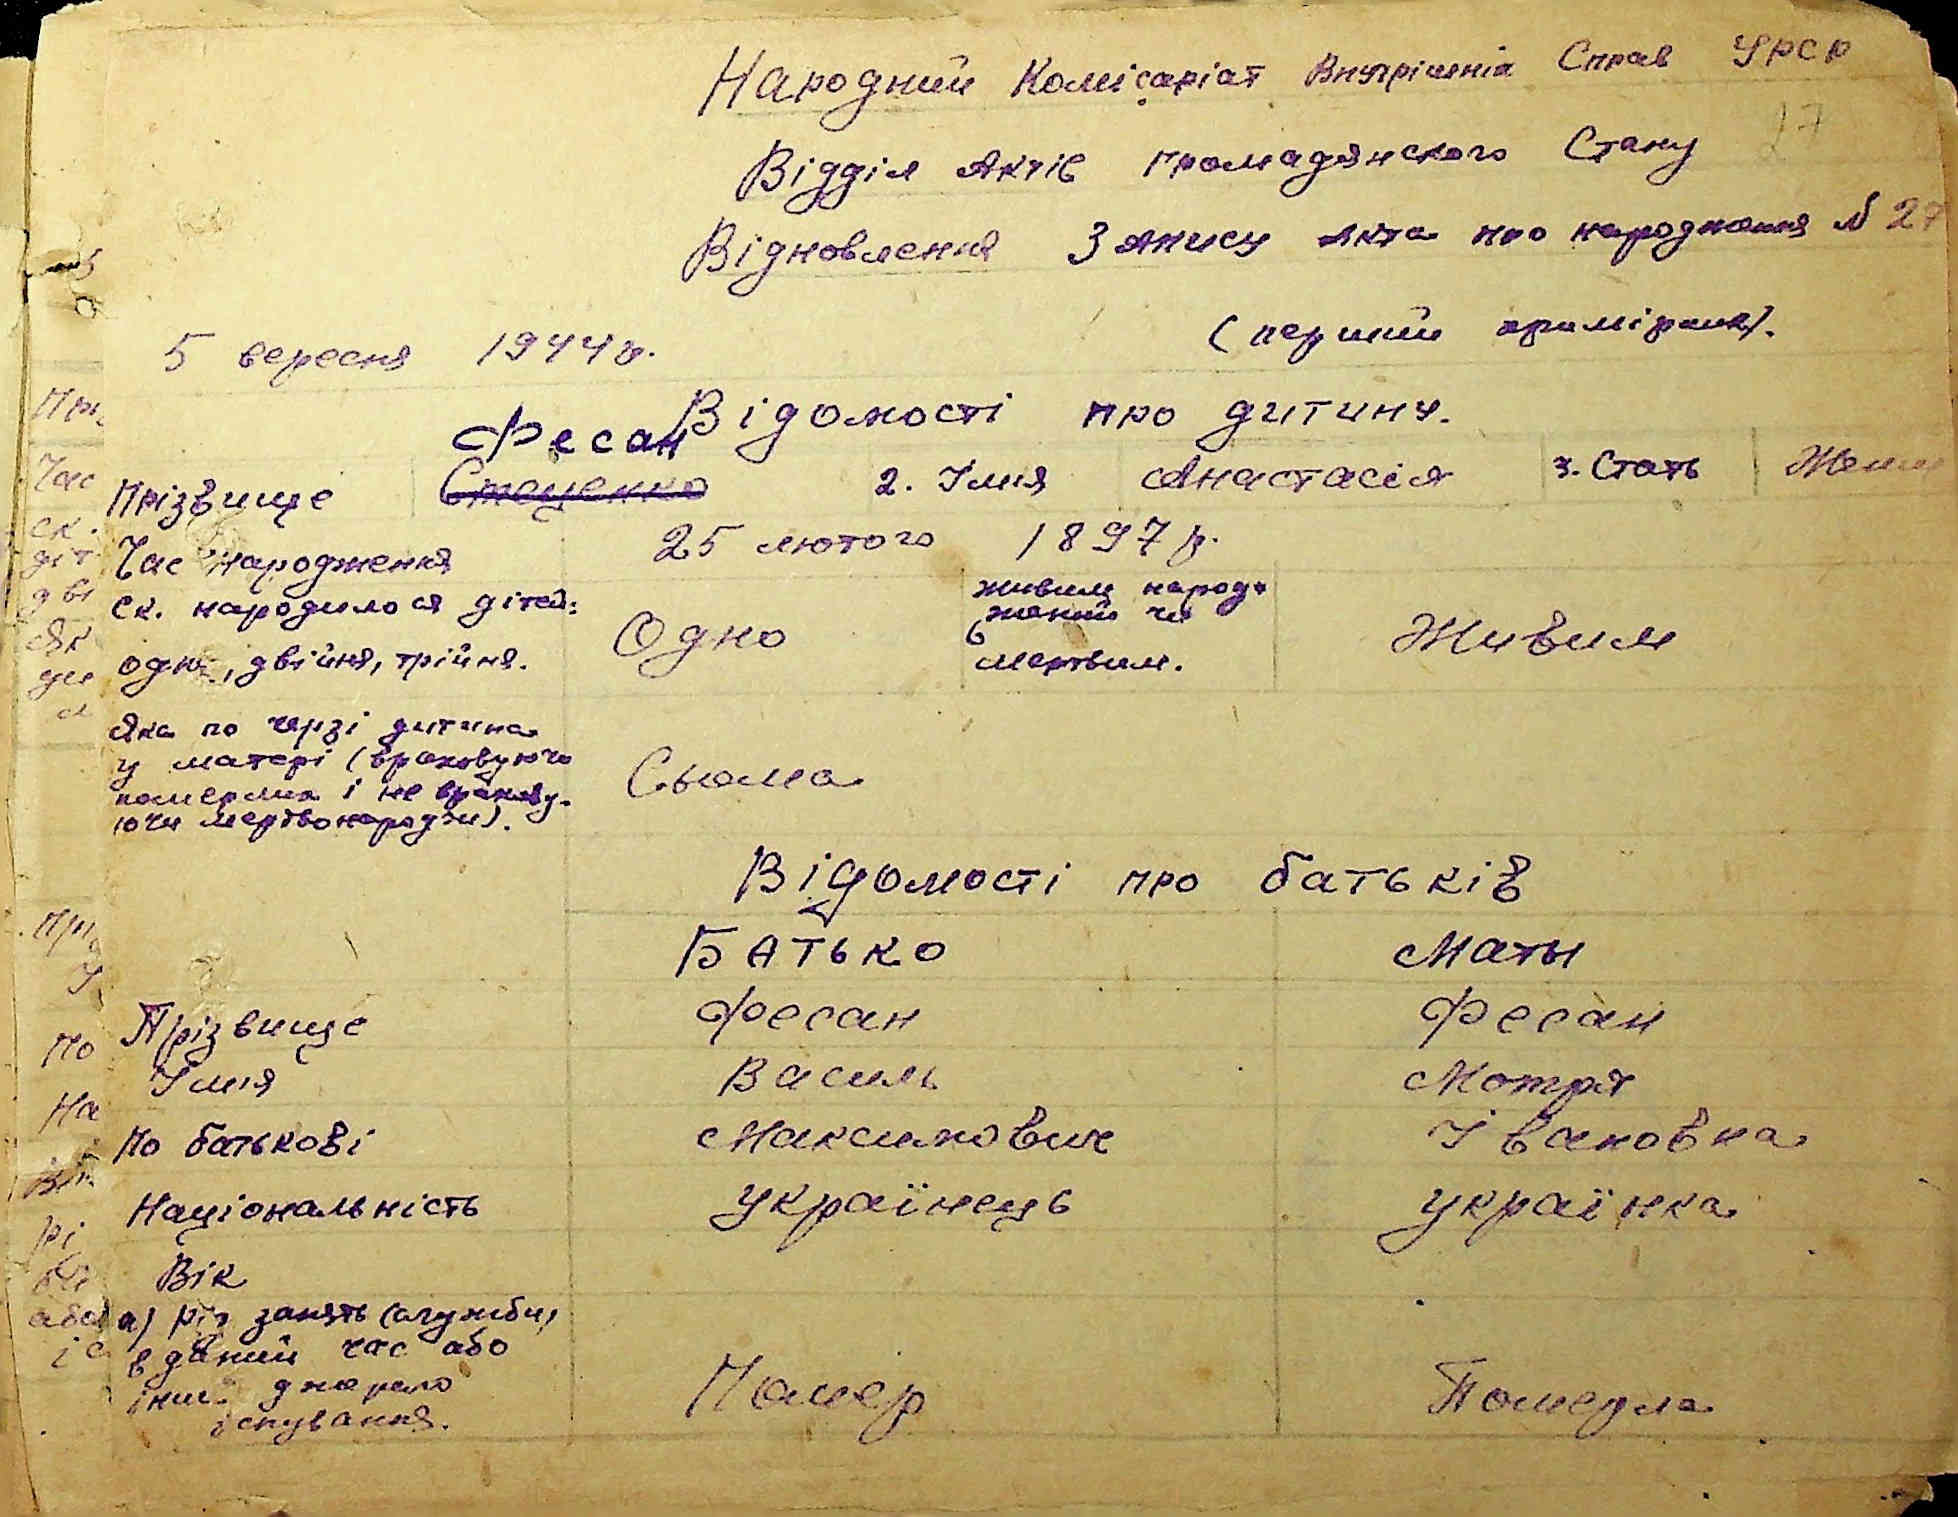 Народний Комісаріат Внутрішніх Справ УРСР
17
Відділ Актів Громадянского Стану
Відновлення Запису Акта про народження N 27
(перший примірник).
5 вересня 1944 р.
Відомості про дитину.
Фесан
Прізвище Стеценко 2. Імя Анастасія 3. Стать Жен
Час народження 25 лютого 1897 р.
Ск. народилося дітей:
одне, двійня, трійня.
Одно
живим народ-
жений чи
мертвим.
Живим
Яка по черзі дитина
у матері (враховуючи
померлих і не врахову-
ючи мертвонародж).
Сьома
Відомості про батьків
Батько Мати
Прізвище Фесан Фесан
Імя Василь Мотря
По батькові Максимович Івановна
Національність українець українка
Вік
а) рід занять (служби)
в даний час або
інше джерело
існування.
Помер Померла